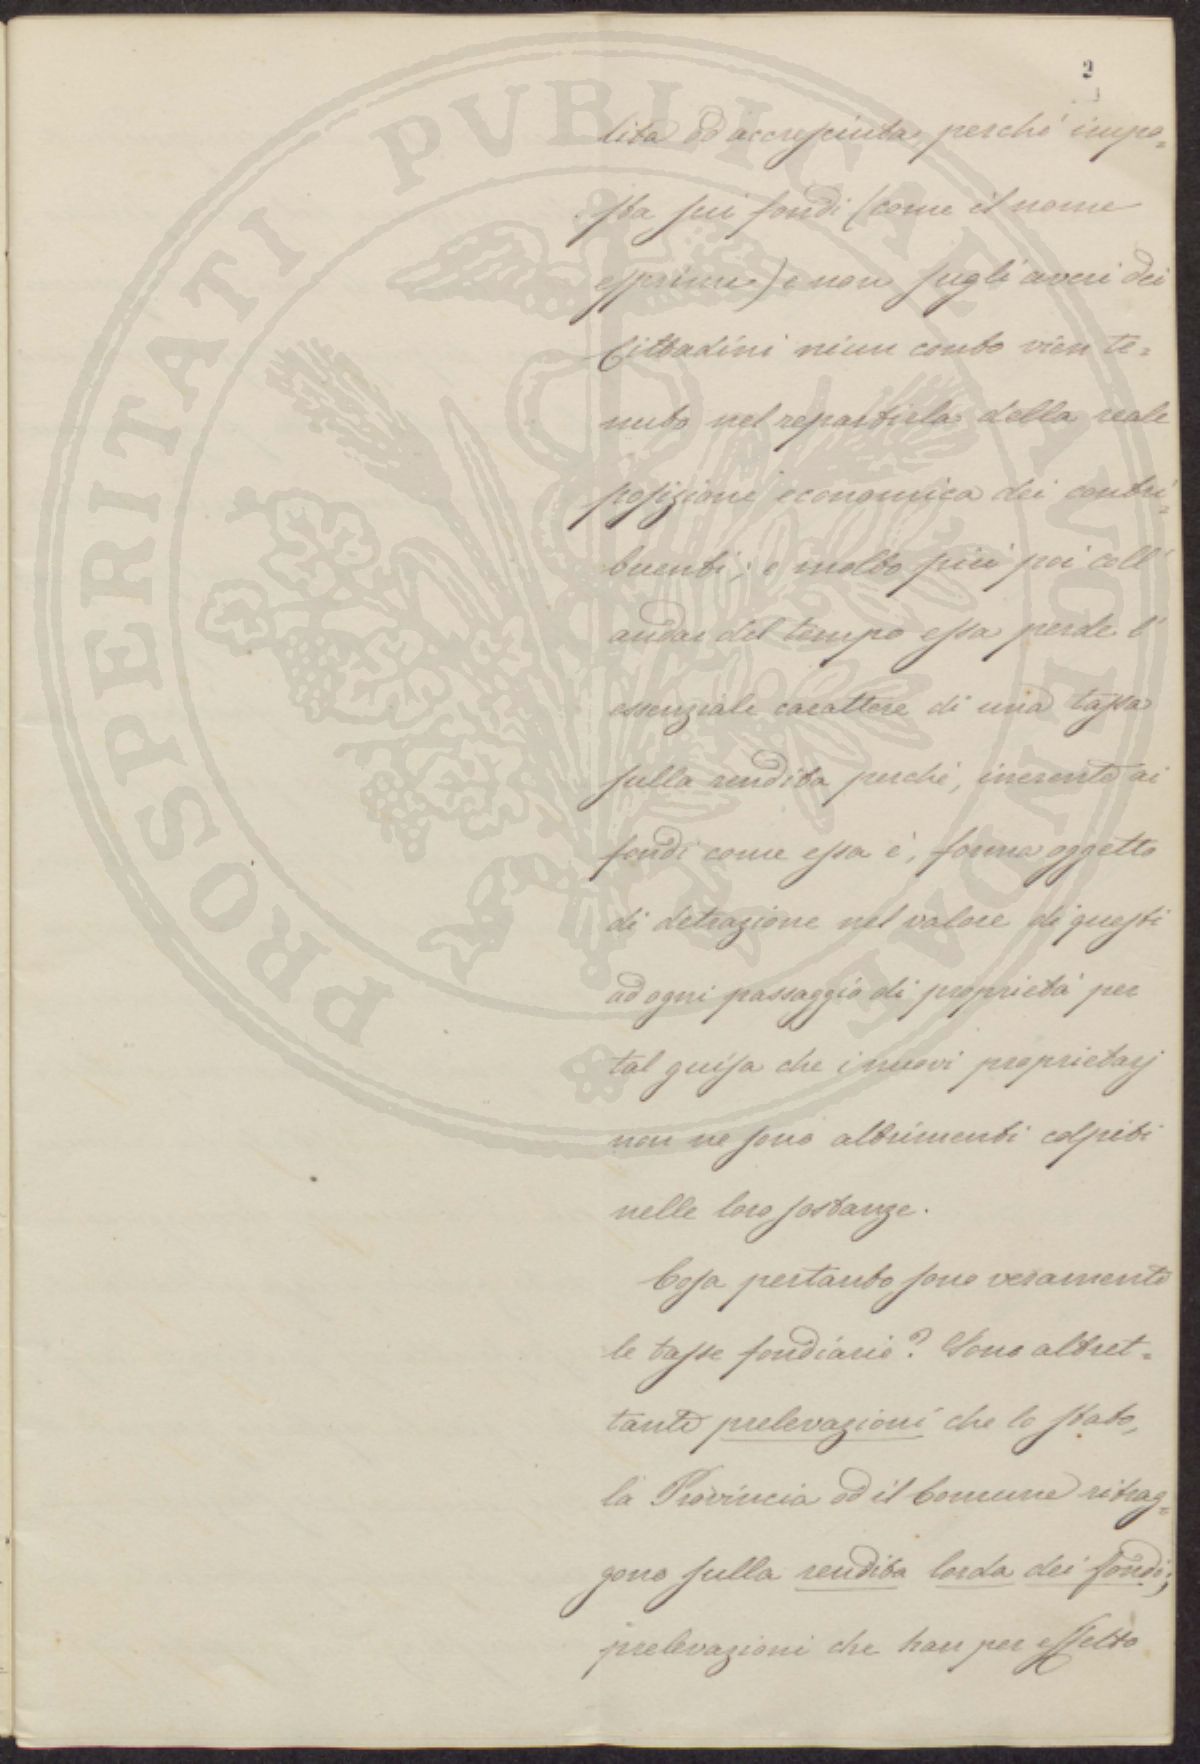 2
lita od accresciuta, perchè impo=
sta sui fondi (come il nome
esprime) e non sugli averi dei
Cittadini niun conto vien te=
nuto nel repartirla della reale
posizione economica dei contri=
buenti; e molto più poi coll'
andar del tempo essa perde l'
essenziale carattere di una tassa
sulla rendita perchè, inerente ai
fondi come essa è, forma oggetto
di detrazione nel valore di questi
ad ogni passaggio di proprietà per
tal guisa che i nuovi proprietarj
non ne sono altrimenti colpiti
nelle loro sostanze.
Cosa pertanto sono veramente
le tasse fondiarie? Sono altret=
tante prelevazioni che lo Stato,
la Provincia od il Comune ritrag=
gono sulla rendita lorda dei fondi;
prelevazioni che han per effetto
PROSPERITATI PVBLICAE AVGENDAE